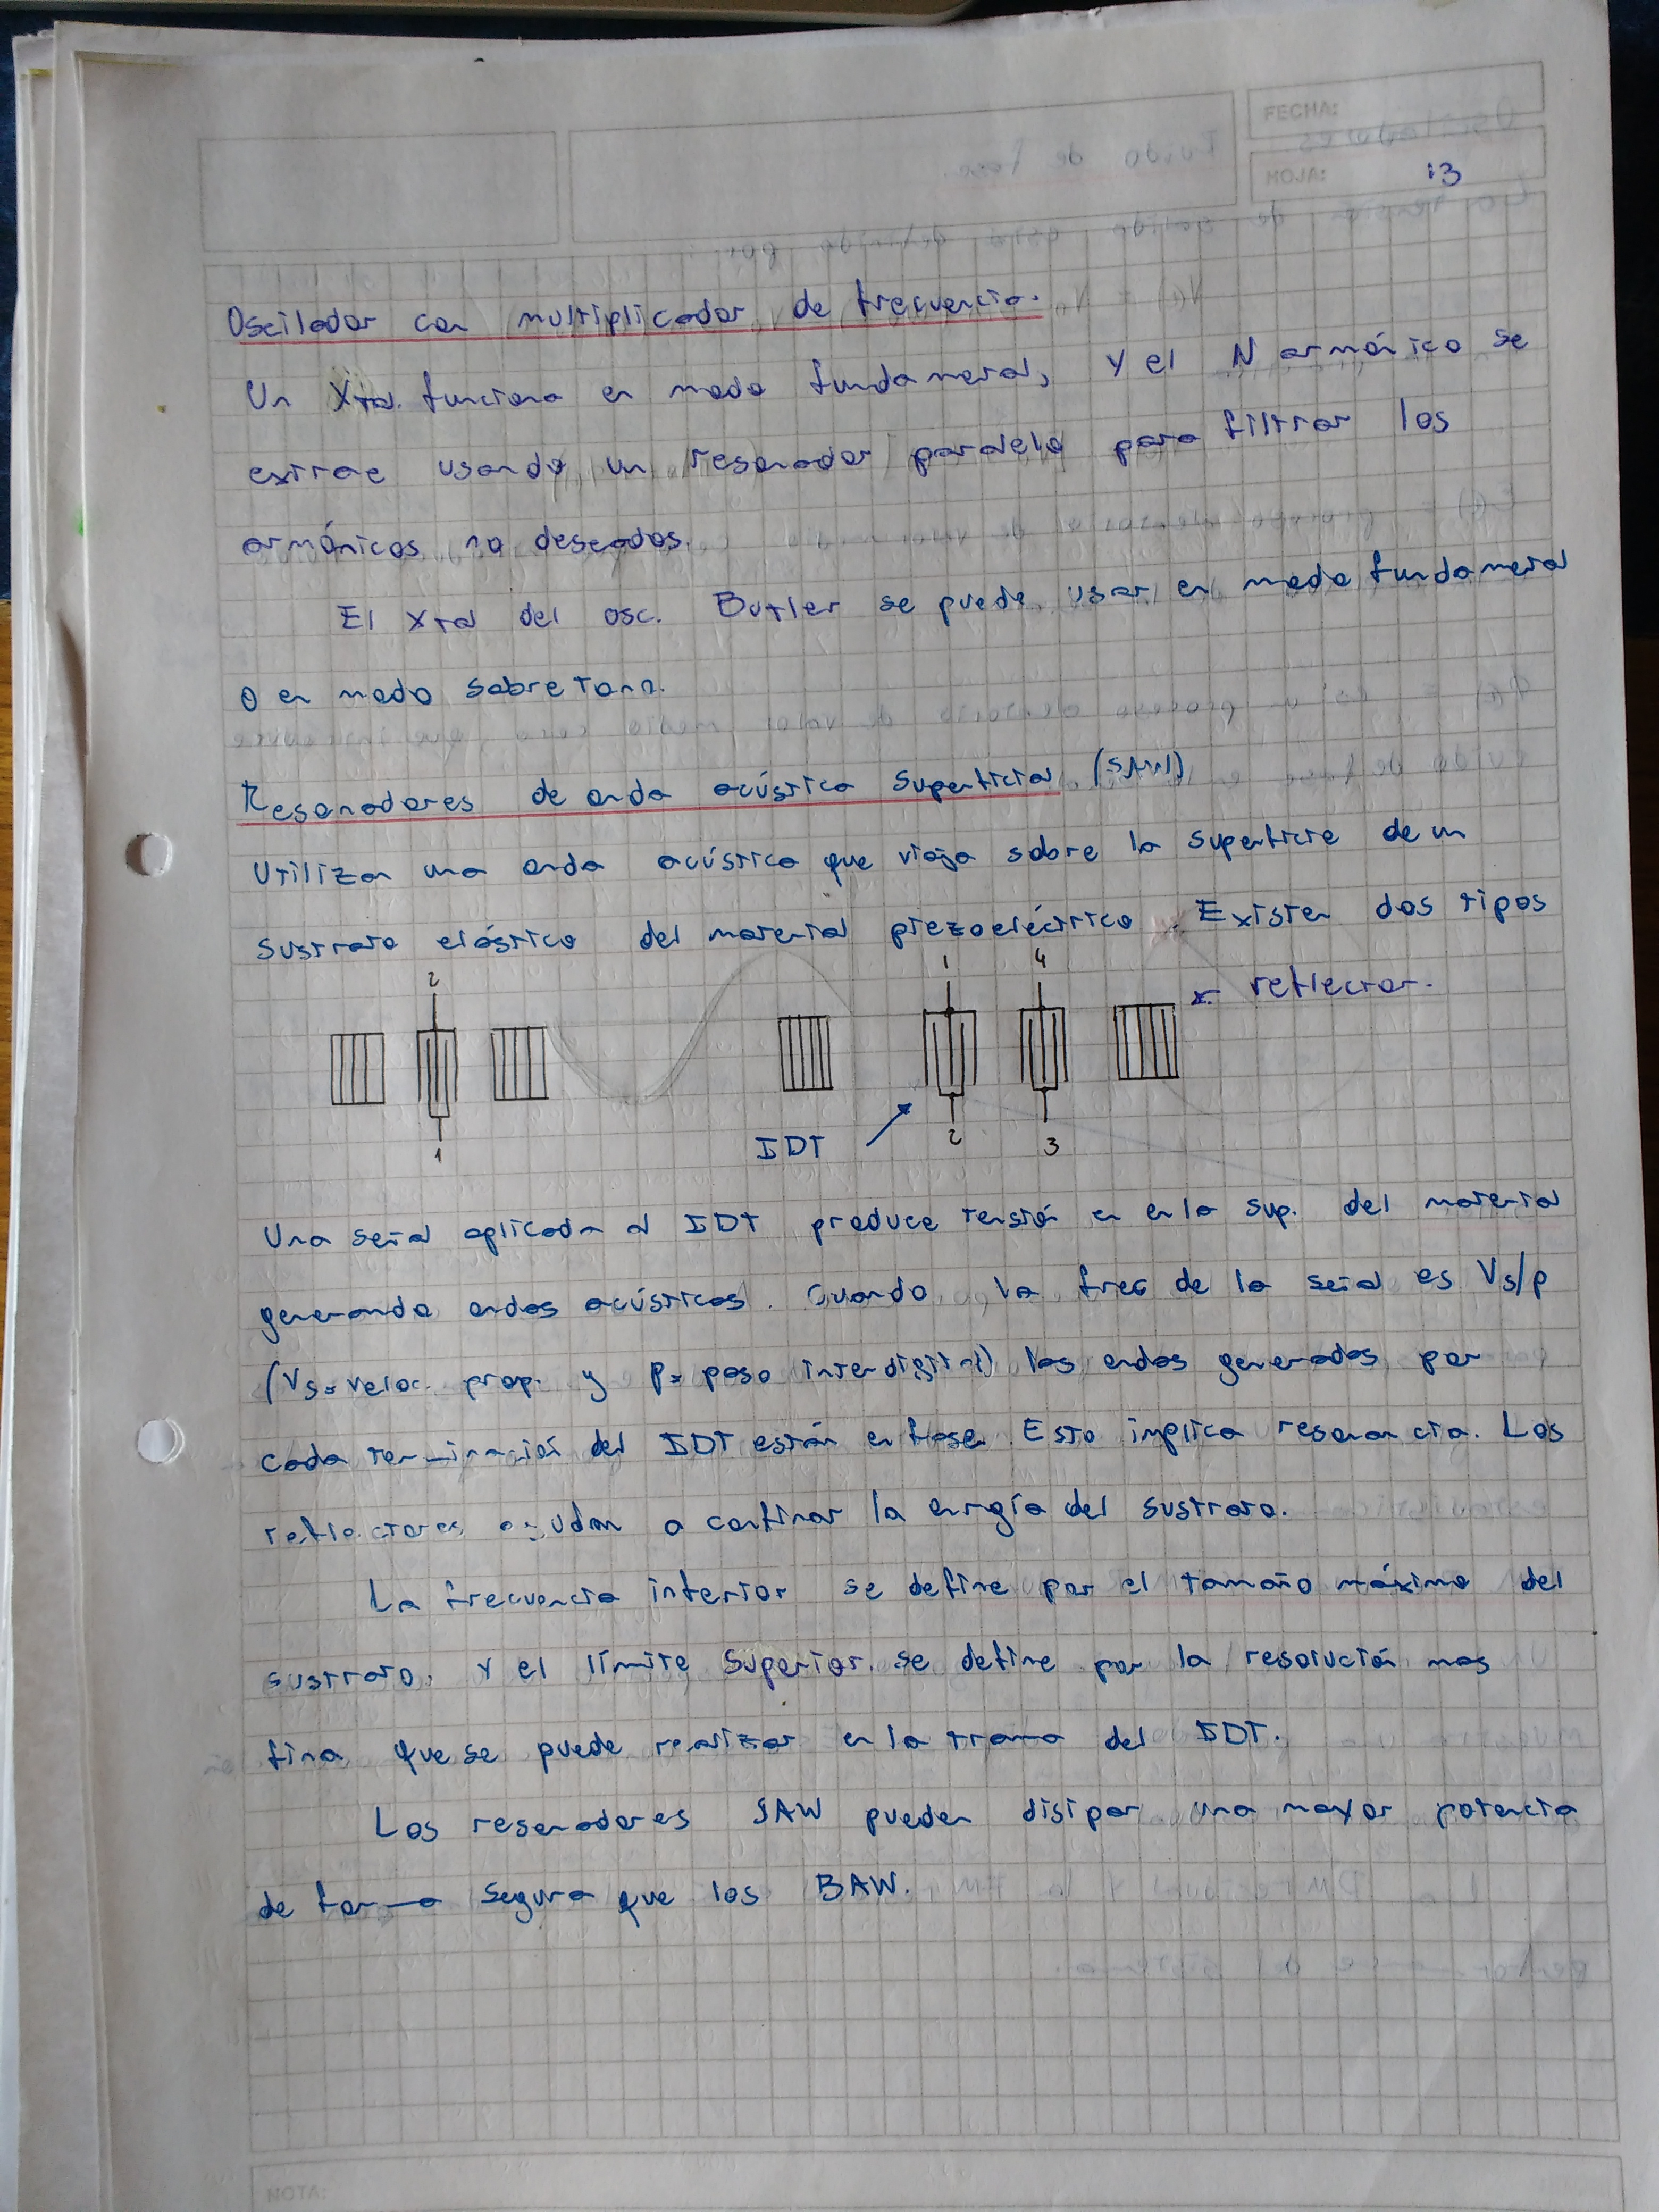 FECHA:
HOJA: 13
Oscilador con multiplicador de frecuencia.
Un Xtal funciona en modo fundamental, y el N armónico se
extrae usando un resonador paralelo para filtrar los
armónicos no deseados.
El xtal del osc. Butler se puede usar en modo fundamental
o en modo sobretono.
Resonadores de onda acústica superficial (SAW)
Utilizan una onda acústica que viaja sobre la superficie de un
sustrato elástico del material piezoeléctrico. Existen dos tipos
2 1 4 reflector.
IDT 2 3
1
Una señal aplicada al IDT produce tensión en en la sup. del material
generando ondas acústicas. Cuando la frec de la señal es Vs/p
(Vs=veloc. prop. y p= paso interdigital) las ondas generadas por
cada terminación del IDT están en fase. Esto implica resonancia. Los
reflectores ayudan a confinar la enrgía del sustrato.
La frecuencia inferior se define por el tamaño máximo del
sustrato. Y el límite superior se define por la resolución mas
fina que se puede realizar en la trama del IDT.
Los resonadores SAW pueden disipar una mayor potencia
de forma segura que los BAW.
NOTA: